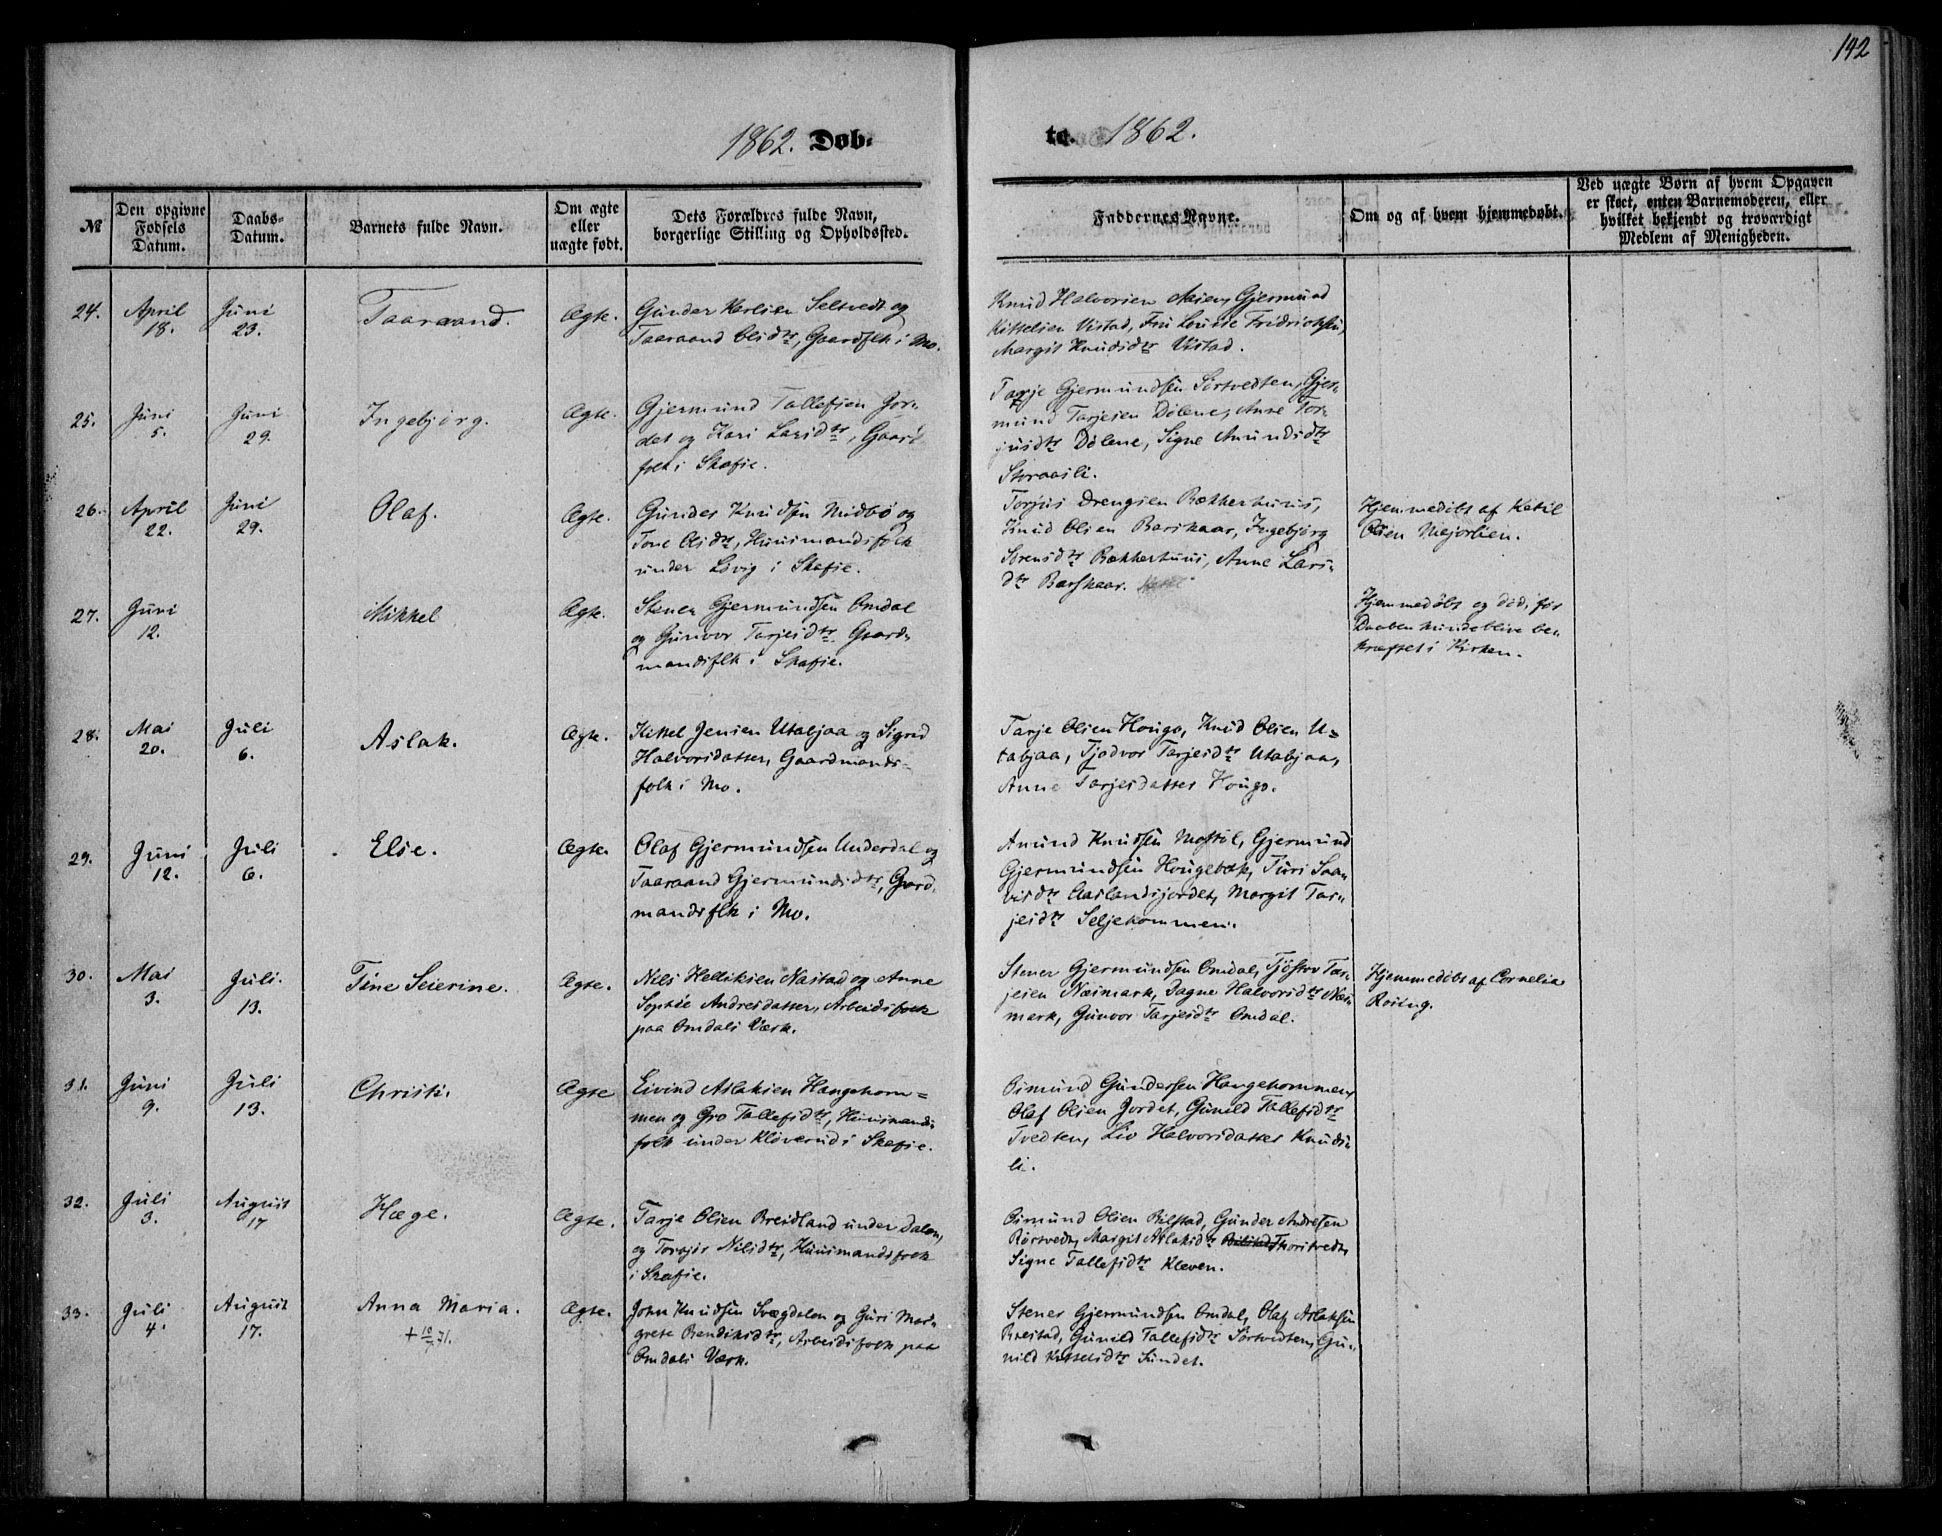 142
1862. Døb-
te. 1862.
№
Den opgivne Fødsels Datum.
Daabs-Datum.
Barnets fulde Navn.
Om ægte eller uægte født.
Dets Forældres fulde Navn, borgerlige Stilling og Opholdssted.
Faddernes Navne.
Om og af hvem hjemmedøbt.
Ved uægte Børn af hvem Opgaven er skeet, enten Barnemoderen, eller hvilket bekjendt og troværdigt Medlem af Menigheden.
24. April 18. Juni 23. Taaraand. Ægte.
Gunder Seltvedt og
Taaraand Olsdtr, Gaardflk i Mo.
Knud Halvorsen Gjermund
Kittelsen Vistad, Fru Louise
Margit Knudsdtr Vistad.
25. Juni 5. Juni 29. Ingebjørg. Ægte.
Gjermund Tallefsen Jor-
det og Kari Larsdtr, Gaard
folk i Skafse.
Tarje Gjermundsen Sørtvedten, Gjer-
mund Tarjesen Dølene, Anne Tor-
jusdtr Dølene, Signe Amundsdtr
Storaasli.
26. April 22. Juni 29. Olaf. Ægte.
Gunder Knudsen Midbø og
Tone Olsdtr, Huusmandsfolk
under Løvig i Skafse.
Torjus Drengsen Bækkerhuus,
Knud Olsen Barskaar, Ingebjørg
Sørensdtr Bækkerhuus, Anne Lars-
dtr Barskaar.
Hjemmedøbt af Ketil
Olsen Mejorlien.
27. Juni 12. Mikkel Ægte.
Stener Gjermundsen Omdal
og Gunvor Tarjesdtr Gaard-
mandsflk i Skafse.
Hjemmedøbt og død, før
Daaben kunde blive be-
kræftet i Kirken.
28. Mai 20. Juli 6. Aslak. Ægte.
Kittel Jensen Utabjaa og Sigrid
Halvorsdatter, Gaardmands-
folk i Mo.
Tarje Olsen Hougo, Knud Olsen U-
tabjaa, Tjodvor Tarjesdtr Utabjaa,
Anne Tarjesdatter Hougo.
29. Juni 12. Juli 6. Else. Ægte.
Olaf Gjermundsen Underdal og
Taaraand Gjermundsdtr, Gard-
mandsflk i Mo.
Amund Knudsen Mostøl, Gjermund
Gjermundsen Hougebak, Turi Saa-
visdtr Aaslandsjordet, Margit Tar-
jesdtr Seljekommen.
30. Mai 3. Juli. 13. Tine Seierine. Ægte.
Nils Helliksen Nastad og Anne
Sophie Andresdatter, Arbeidsfolk
paa Omdals Værk.
Stener Gjermundsen Omdal, Tjøstov Tar-
jesen Næsmark, Dagne Halvorsdtr Næs-
mark, Gunvor Tarjesdtr Omdal.
Hjemmedøbt af Cornelia
Rosing.
31. Juni 9. Juli 13. Christi. Ægte
Eivind Aslaksen Haugekom-
men og Gro Tallefsdtr, Huusmands-
folk under Kløverud i Skafse.
Osmund Gundersen Haugekommen,
Olaf Olsen Jordet, Gunild Tallefsdtr
Tvedten, Liv Halvorsdatter Knuds-
li.
32. Juli 3. August 17 Hæge. Ægte.
Tarje Olsen Breidland under Dalen,
og Torbjør Nilsdtr, Huusmandsfolk
i Skafse.
Osmund Olsen Bilstad, Gunder Andresen
Rørtvedt, Margit Aslaksdtr Bilstad Thoritvedt,
Signe Tallefsdtr Kleven.
33. Juli 4. August 17. Anna Maria. + 10/7 71. Ægte.
John Knudsen Svægdalen og Guri Mar-
grete Bendiksdtr, Arbeidsfolk paa
Omdals Værk.
Stener Gjermundsen Omdal, Olaf Aslaksen
Breistad, Gunild Tallefsdtr Sørtvedten, Gu-
nild Kittelsdtr Sundet.